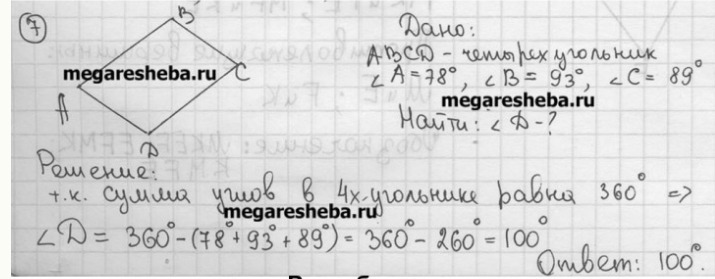 7
B
Дано:
ABCD - четырехугольник
megaresheba.ru
C
∠A=78°, ∠B= 93°, ∠C= 89°
A
megaresheba.ru
Найти: ∠D-?
D
Решение:
т.к. сумма углов в 4х-угольнике равна 360° =>
megaresheba.ru
∠D = 360°-(78°+93°+89°)= 360°- 260°=100°
Ответ: 100°.